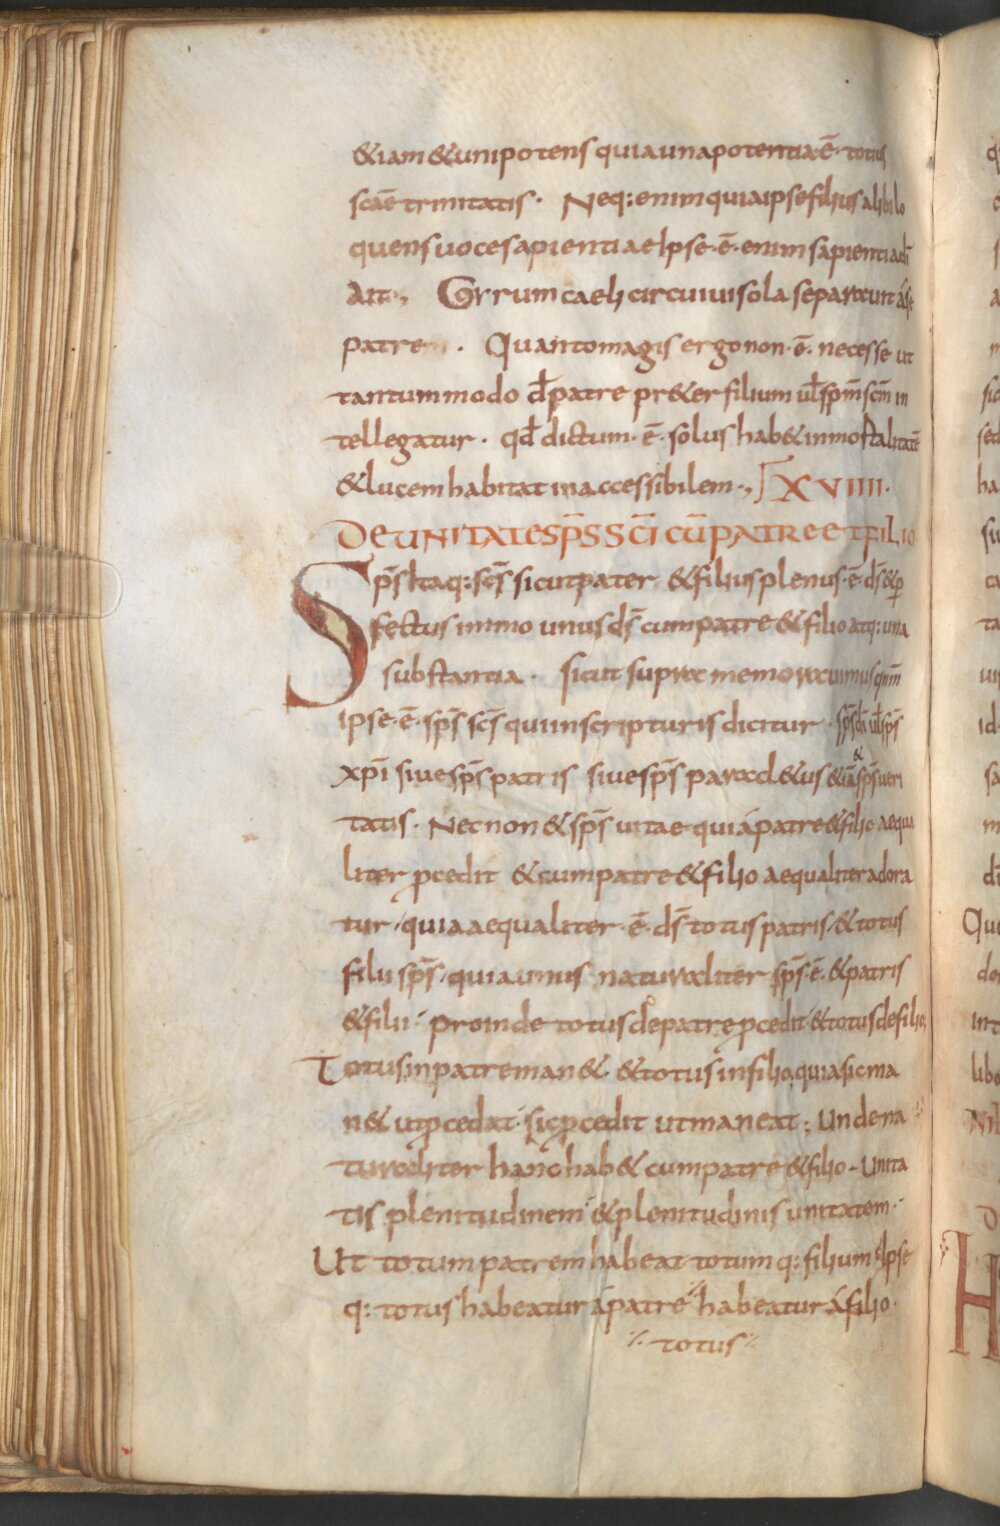 &iam & unipotens quia una potentia ē · totius
scāe trinitatis · Neq: enim quia ipse filius alibi lo
quens uoce sapientiae Ipse · ē · enim sapientia dī
Ait ., Gyrum caeli circuiui sola separauit áse
patre · Quanto magis ergo non · ē · necesse ut
tantummodo d̄ patre pr&er filium ul̄ spm̄ scm̄ in
tellegatur · qd̄ dictum · ē · solus hab& inmortalitatē
& lucem habitat inaccessibilem ., XVIIII ·
DE UNITATE SPS̄ SCĪ CŪ PATRE ET FILIO
Sps̄ Itaq: scs̄ sicut pater & filius plenus · ē · ds̄ & ꝑ
fectus immo unus ds̄ cum patre & filio atq: una
substantia · sicut supra memorauimus qnm̄
ipse · ē · sps̄ scs̄ qui in scripturis dicitur · sps̄ dī ul̄ sps̄
xpī siue sps̄ patris siue sps̄ paracl&us &iā sps̄ ueri
tatis · Nec non & sps̄ uitae qui á patre & filio aequa
liter ꝓcedit & cum patre & filio aequaliter adora
tur, quia aequaliter · ē · ds̄ totus patris, & totus
filii sps̄, quia unus naturaliter sps̄ · ē · & patris
& filii · proinde totus de patre ꝓcedit · & totus de filio,
Totus in patre man& · & totus in filio, quia sic ma
n& ut ꝓcedat · sic ꝓcedit ut maneat ; Unde na
turaliter hanc hab& cum patre & filio · Unita
tis plenitudinem & plenitudinis unitatem ·
Ut totum patrem habeat totumq: filium Ipse
q: totus habeatur á patre ⁒ habeatur á filio ·
⁒ totus ⁒